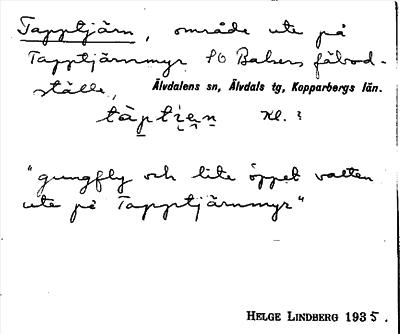 Tapptjärn, område ute på
Tapptjärnmyr SO Balsers fäbod-
ställe, Älvdalens sn, Älvdals tg, Kopparbergs län.
Kl. 3
"gungfly och lite öppet vatten
ute på Tapptjärnmyr"
HELGE LINDBERG 1935.